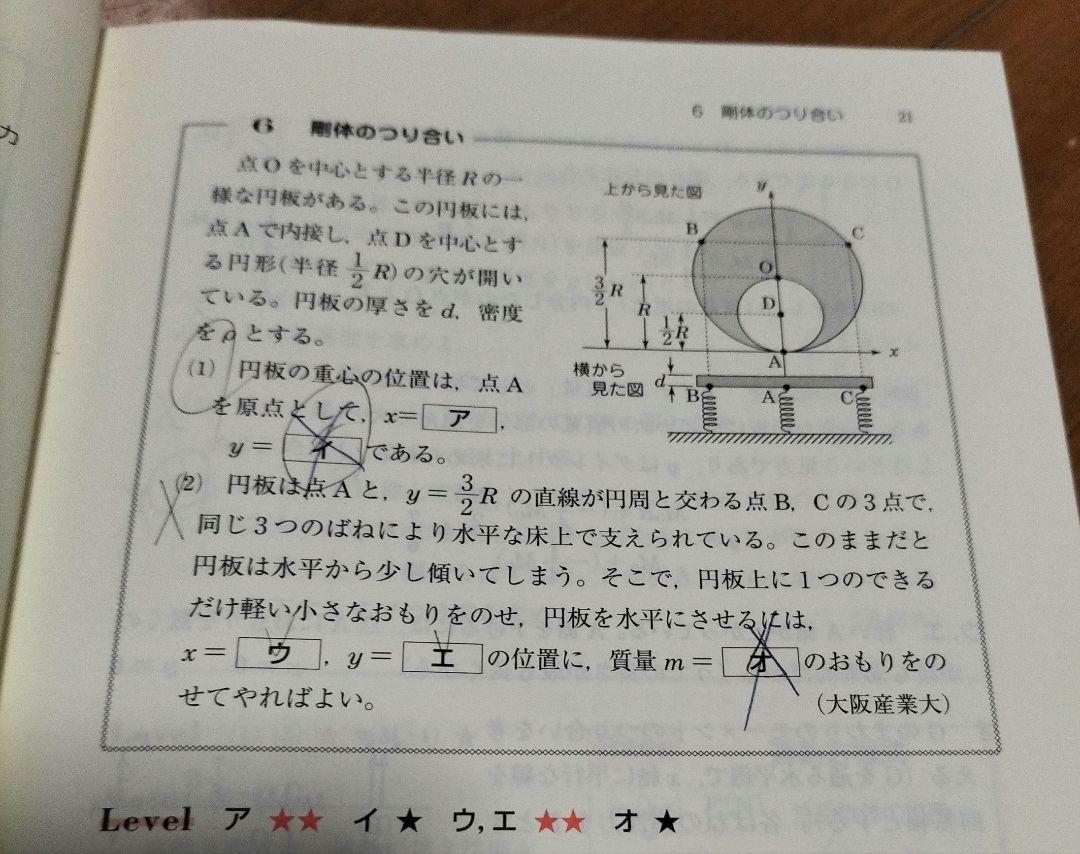 カ
6 剛体のつり合い 21
6 剛体のつり合い
点Oを中心とする半径Rの一
様な円板がある。この円板には,
点Aで内接し,点Dを中心とす
る円形(半径 1/2 R)の穴が開い
ている。円板の厚さをd,密度
をρとする。
(1) 円板の重心の位置は,点A
を原点として,x= ア ,
y= イ である。
上から見た図
y
B
C
O
D
3/2 R
R
1/2 R
A
x
横から
見た図
d
B A C
(2) 円板は点Aと,y=3/2 R の直線が円周と交わる点B,Cの3点で,
同じ3つのばねにより水平な床上で支えられている。このままだと
円板は水平から少し傾いてしまう。そこで,円板上に1つのできる
だけ軽い小さなおもりをのせ,円板を水平にさせるには,
x= ウ ,y= エ の位置に,質量m= オ のおもりをの
せてやればよい。 (大阪産業大)
Level ア ★★ イ ★ ウ,エ ★★ オ ★